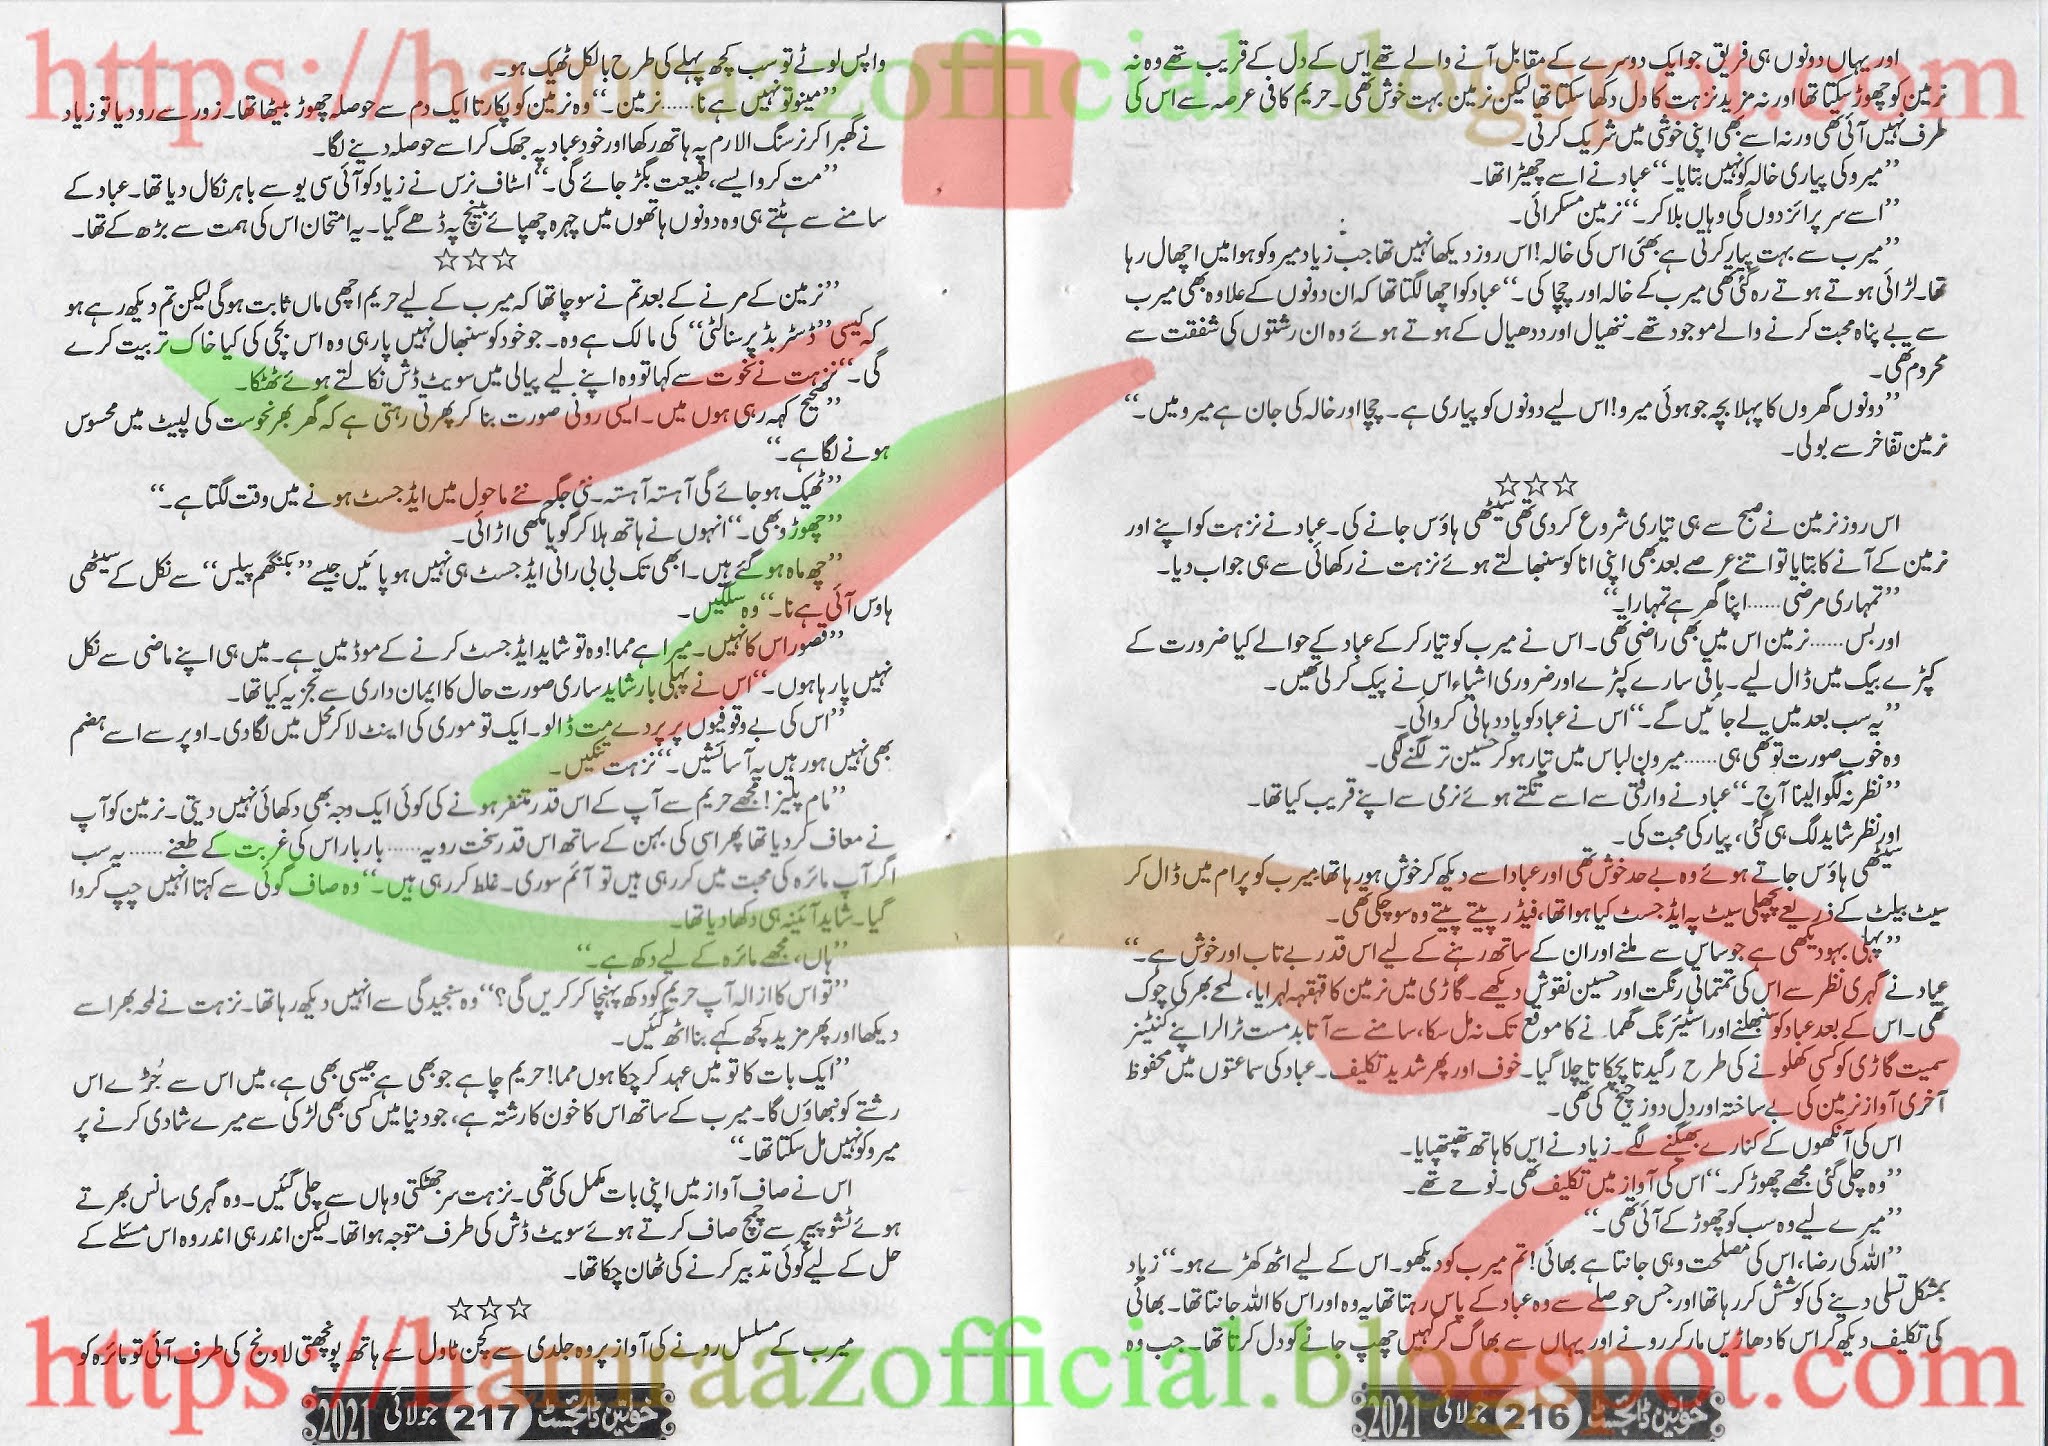 https://hamraazofficial.blogspot.com
اور یہاں دونوں ہی فریق جو ایک دوسرے کے مقابل آنے والے تھے اس کے دل کے قریب تھے وہ نہ
نرمین کو چھوڑ سکتا تھا اور نہ مزید نزہت کا دل دکھا سکتا تھا لیکن نرمین بہت خوش تھی۔ حریم کافی عرصہ سے اس کی
طرف نہیں آئی تھی ورنہ اسے بھی اپنی خوشی میں شریک کرتی۔
’’میرو کی پیاری خالہ کو نہیں بتایا۔‘‘ عباد نے اسے چھیڑا تھا۔
’’اسے سرپرائز دوں گی وہاں بلا کر۔‘‘ نرمین مسکرائی۔
’’میرب سے بہت پیار کرتی ہے بھئی اس کی خالہ! اس روز دیکھا نہیں تھا جب زیاد میرو کو ہوا میں اچھال رہا
تھا۔ لڑائی ہوتے ہوتے رہ گئی تھی میرب کے خالہ اور چچا کی۔‘‘ عباد کو اچھا لگتا تھا کہ ان دونوں کے علاوہ بھی میرب
سے بے پناہ محبت کرنے والے موجود تھے۔ ننھیال اور ددھیال کے ہوتے ہوئے وہ ان رشتوں کی شفقت سے
محروم تھی۔
’’دونوں گھروں کا پہلا بچہ جو ہوئی میرو! اس لیے دونوں کو پیاری ہے۔ چچا اور خالہ کی جان ہے میرو میں۔‘‘
نرمین تفاخر سے بولی۔
☆☆☆
اس روز نرمین نے صبح سے ہی تیاری شروع کر دی تھی سیٹھی ہاؤس جانے کی۔ عباد نے نزہت کو اپنے اور
نرمین کے آنے کا بتایا تو اتنے عرصے بعد بھی اپنی انا کو سنبھالتے ہوئے نزہت نے رکھائی سے ہی جواب دیا۔
’’تمہاری مرضی...... اپنا گھر ہے تمہارا۔‘‘
اور بس...... نرمین اس میں بھی راضی تھی۔ اس نے میرب کو تیار کر کے عباد کے حوالے کیا ضرورت کے
کپڑے بیگ میں ڈال لیے۔ باقی سارے کپڑے اور ضروری اشیاء اس نے پیک کر لی تھیں۔
’’یہ سب بعد میں لے جائیں گے۔‘‘ اس نے عباد کو یاد دہانی کروائی۔
وہ خوب صورت تو تھی ہی...... میرون لباس میں تیار ہو کر حسین تر لگنے لگی۔
’’نظر نہ لگوا لینا آج۔‘‘ عباد نے وارفتگی سے اسے تکتے ہوئے نرمی سے اپنے قریب کیا تھا۔
اور نظر شاید لگ ہی گئی، پیار کی محبت کی۔
سیٹھی ہاؤس جاتے ہوئے وہ بے حد خوش تھی اور عباد اسے دیکھ کر خوش ہو رہا تھا میرب کو پرام میں ڈال کر
سیٹ بیلٹ کے ذریعے پچھلی سیٹ پہ ایڈجسٹ کیا ہوا تھا، فیڈر پیتے پیتے وہ سو چکی تھی۔
’’پہلی بہو دیکھی ہے جو ساس سے ملنے اور ان کے ساتھ رہنے کے لیے اس قدر بے تاب اور خوش ہے۔‘‘
عباد نے گہری نظر سے اس کی تمتماتی رنگت اور حسین نقوش دیکھے۔ گاڑی میں نرمین کا قہقہہ لہرایا، لمحے بھر کی چوک
تھی۔ اس کے بعد عباد کو سنبھلنے اور اسٹیئرنگ گھمانے کا موقع تک نہ مل سکا، سامنے سے آتا بدمست ٹرالر اپنے کنٹینر
سمیت گاڑی کو کسی کھلونے کی طرح رگیدتا پچکاتا چلا گیا۔ خوف اور پھر شدید تکلیف۔ عباد کی سماعتوں میں محفوظ
آخری آواز نرمین کی بے ساختہ اور دل دوز چیخ کی تھی۔
اس کی آنکھوں کے کنارے بھیگنے لگے۔ زیاد نے اس کا ہاتھ تھپتھپایا۔
’’وہ چلی گئی مجھے چھوڑ کر۔‘‘ اس کی آواز میں تکلیف تھی۔ نوحے تھے۔
’’میرے لیے وہ سب کو چھوڑ کے آئی تھی۔‘‘
’’اللہ کی رضا، اس کی مصلحت وہی جانتا ہے بھائی! تم میرب کو دیکھو۔ اس کے لیے اٹھ کھڑے ہو۔‘‘ زیاد
بمشکل تسلی دینے کی کوشش کر رہا تھا اور جس حوصلے سے وہ عباد کے پاس رہتا تھا یہ وہ اور اس کا اللہ جانتا تھا۔ بھائی
کی تکلیف دیکھ کر اس کا دھاڑیں مار کر رونے اور یہاں سے بھاگ کر کہیں چھپ جانے کو دل کرتا تھا۔ جب وہ
خواتین ڈائجسٹ 216 جولائی 2021
واپس لوٹے تو سب کچھ پہلے کی طرح بالکل ٹھیک ہو۔
’’مینو تو نہیں ہے نا...... نرمین۔‘‘ وہ نرمین کو پکارتا ایک دم سے حوصلہ چھوڑ بیٹھا تھا۔ زور سے رو دیا تو زیاد
نے گھبرا کر نرسنگ الارم پہ ہاتھ رکھا اور خود عباد پہ جھک کر اسے حوصلہ دینے لگا۔
’’مت کرو ایسے، طبیعت بگڑ جائے گی۔‘‘ اسٹاف نرس نے زیاد کو آئی سی یو سے باہر نکال دیا تھا۔ عباد کے
سامنے سے ہٹتے ہی وہ دونوں ہاتھوں میں چہرہ چھپائے بینچ پہ ڈھے گیا۔ یہ امتحان اس کی ہمت سے بڑھ کے تھا۔
☆☆☆
’’نرمین کے مرنے کے بعد تم نے سوچا تھا کہ میرب کے لیے حریم اچھی ماں ثابت ہوگی لیکن تم دیکھ رہے ہو
کہ کیسی ’’ڈسٹربڈ پرسنالٹی‘‘ کی مالک ہے وہ۔ جو خود کو سنبھال نہیں پا رہی وہ اس بچی کی کیا خاک تربیت کرے
گی۔‘‘ نزہت نے نخوت سے کہا تو وہ اپنے لیے پیالی میں سویٹ ڈش نکالتے ہوئے ٹھٹکا۔
’’صحیح کہہ رہی ہوں میں۔ ایسی رونی صورت بنا کر پھرتی رہتی ہے کہ گھر بھر نحوست کی لپیٹ میں محسوس
ہونے لگا ہے۔‘‘
’’ٹھیک ہو جائے گی آہستہ آہستہ۔ نئی جگہ نئے ماحول میں ایڈجسٹ ہونے میں وقت لگتا ہے۔‘‘
’’چھوڑو بھی۔‘‘ انہوں نے ہاتھ ہلا کر گویا مکھی اڑائی۔
’’چھ ماہ ہو گئے ہیں۔ ابھی تک بی بی رانی ایڈجسٹ ہی نہیں ہو پائیں جیسے ’’بکنگھم پیلس‘‘ سے نکل کے سیٹھی
ہاوس آئی ہے نا۔‘‘ وہ سلگیں۔
’’قصور اس کا نہیں۔ میرا ہے مما! وہ تو شاید ایڈجسٹ کرنے کے موڈ میں ہے۔ میں ہی اپنے ماضی سے نکل
نہیں پا رہا ہوں۔‘‘ اس نے پہلی بار شاید ساری صورت حال کا ایمان داری سے تجزیہ کیا تھا۔
’’اس کی بے وقوفیوں پر پردے مت ڈالو۔ ایک تو موری کی اینٹ لا کر محل میں لگا دی۔ اوپر سے اسے ہضم
بھی نہیں ہو رہیں یہ آسائشیں۔‘‘ نزہت تنکیں۔
’’مام پلیز! مجھے حریم سے آپ کے اس قدر متنفر ہونے کی کوئی ایک وجہ بھی دکھائی نہیں دیتی۔ نرمین کو آپ
نے معاف کر دیا تھا پھر اسی کی بہن کے ساتھ اس قدر سخت رویہ...... بار بار اس کی غربت کے طعنے...... یہ سب
اگر آپ مائرہ کی محبت میں کر رہی ہیں تو آئم سوری۔ غلط کر رہی ہیں۔‘‘ وہ صاف گوئی سے کہتا انہیں چپ کروا
گیا۔ شاید آئینہ ہی دکھا دیا تھا۔
’’ہاں، مجھے مائرہ کے لیے دکھ ہے۔‘‘
’’تو اس کا ازالہ آپ حریم کو دکھ پہنچا کر کریں گی؟‘‘ وہ سنجیدگی سے انہیں دیکھ رہا تھا۔ نزہت نے لمحہ بھر اسے
دیکھا اور پھر مزید کچھ کہے بنا اٹھ گئیں۔
’’ایک بات کا تو میں عہد کر چکا ہوں مما! حریم چاہے جو بھی ہے جیسی بھی ہے، میں اس سے جُڑے اس
رشتے کو نبھاؤں گا۔ میرب کے ساتھ اس کا خون کا رشتہ ہے، جو دنیا میں کسی بھی لڑکی سے میرے شادی کرنے پر
میرو کو نہیں مل سکتا تھا۔‘‘
اس نے صاف آواز میں اپنی بات مکمل کی تھی۔ نزہت سر جھٹکتی وہاں سے چلی گئیں۔ وہ گہری سانس بھرتے
ہوئے ٹشو پیپر سے چمچ صاف کرتے ہوئے سویٹ ڈش کی طرف متوجہ ہوا تھا۔ لیکن اندر ہی اندر وہ اس مسئلے کے
حل کے لیے کوئی تدبیر کرنے کی ٹھان چکا تھا۔
☆☆☆
میرب کے مسلسل رونے کی آواز پر وہ جلدی سے کچن ٹاول سے ہاتھ پونچھتی لاونج کی طرف آئی تو مائرہ کو
خواتین ڈائجسٹ 217 جولائی 2021
https://hamraazofficial.blogspot.com